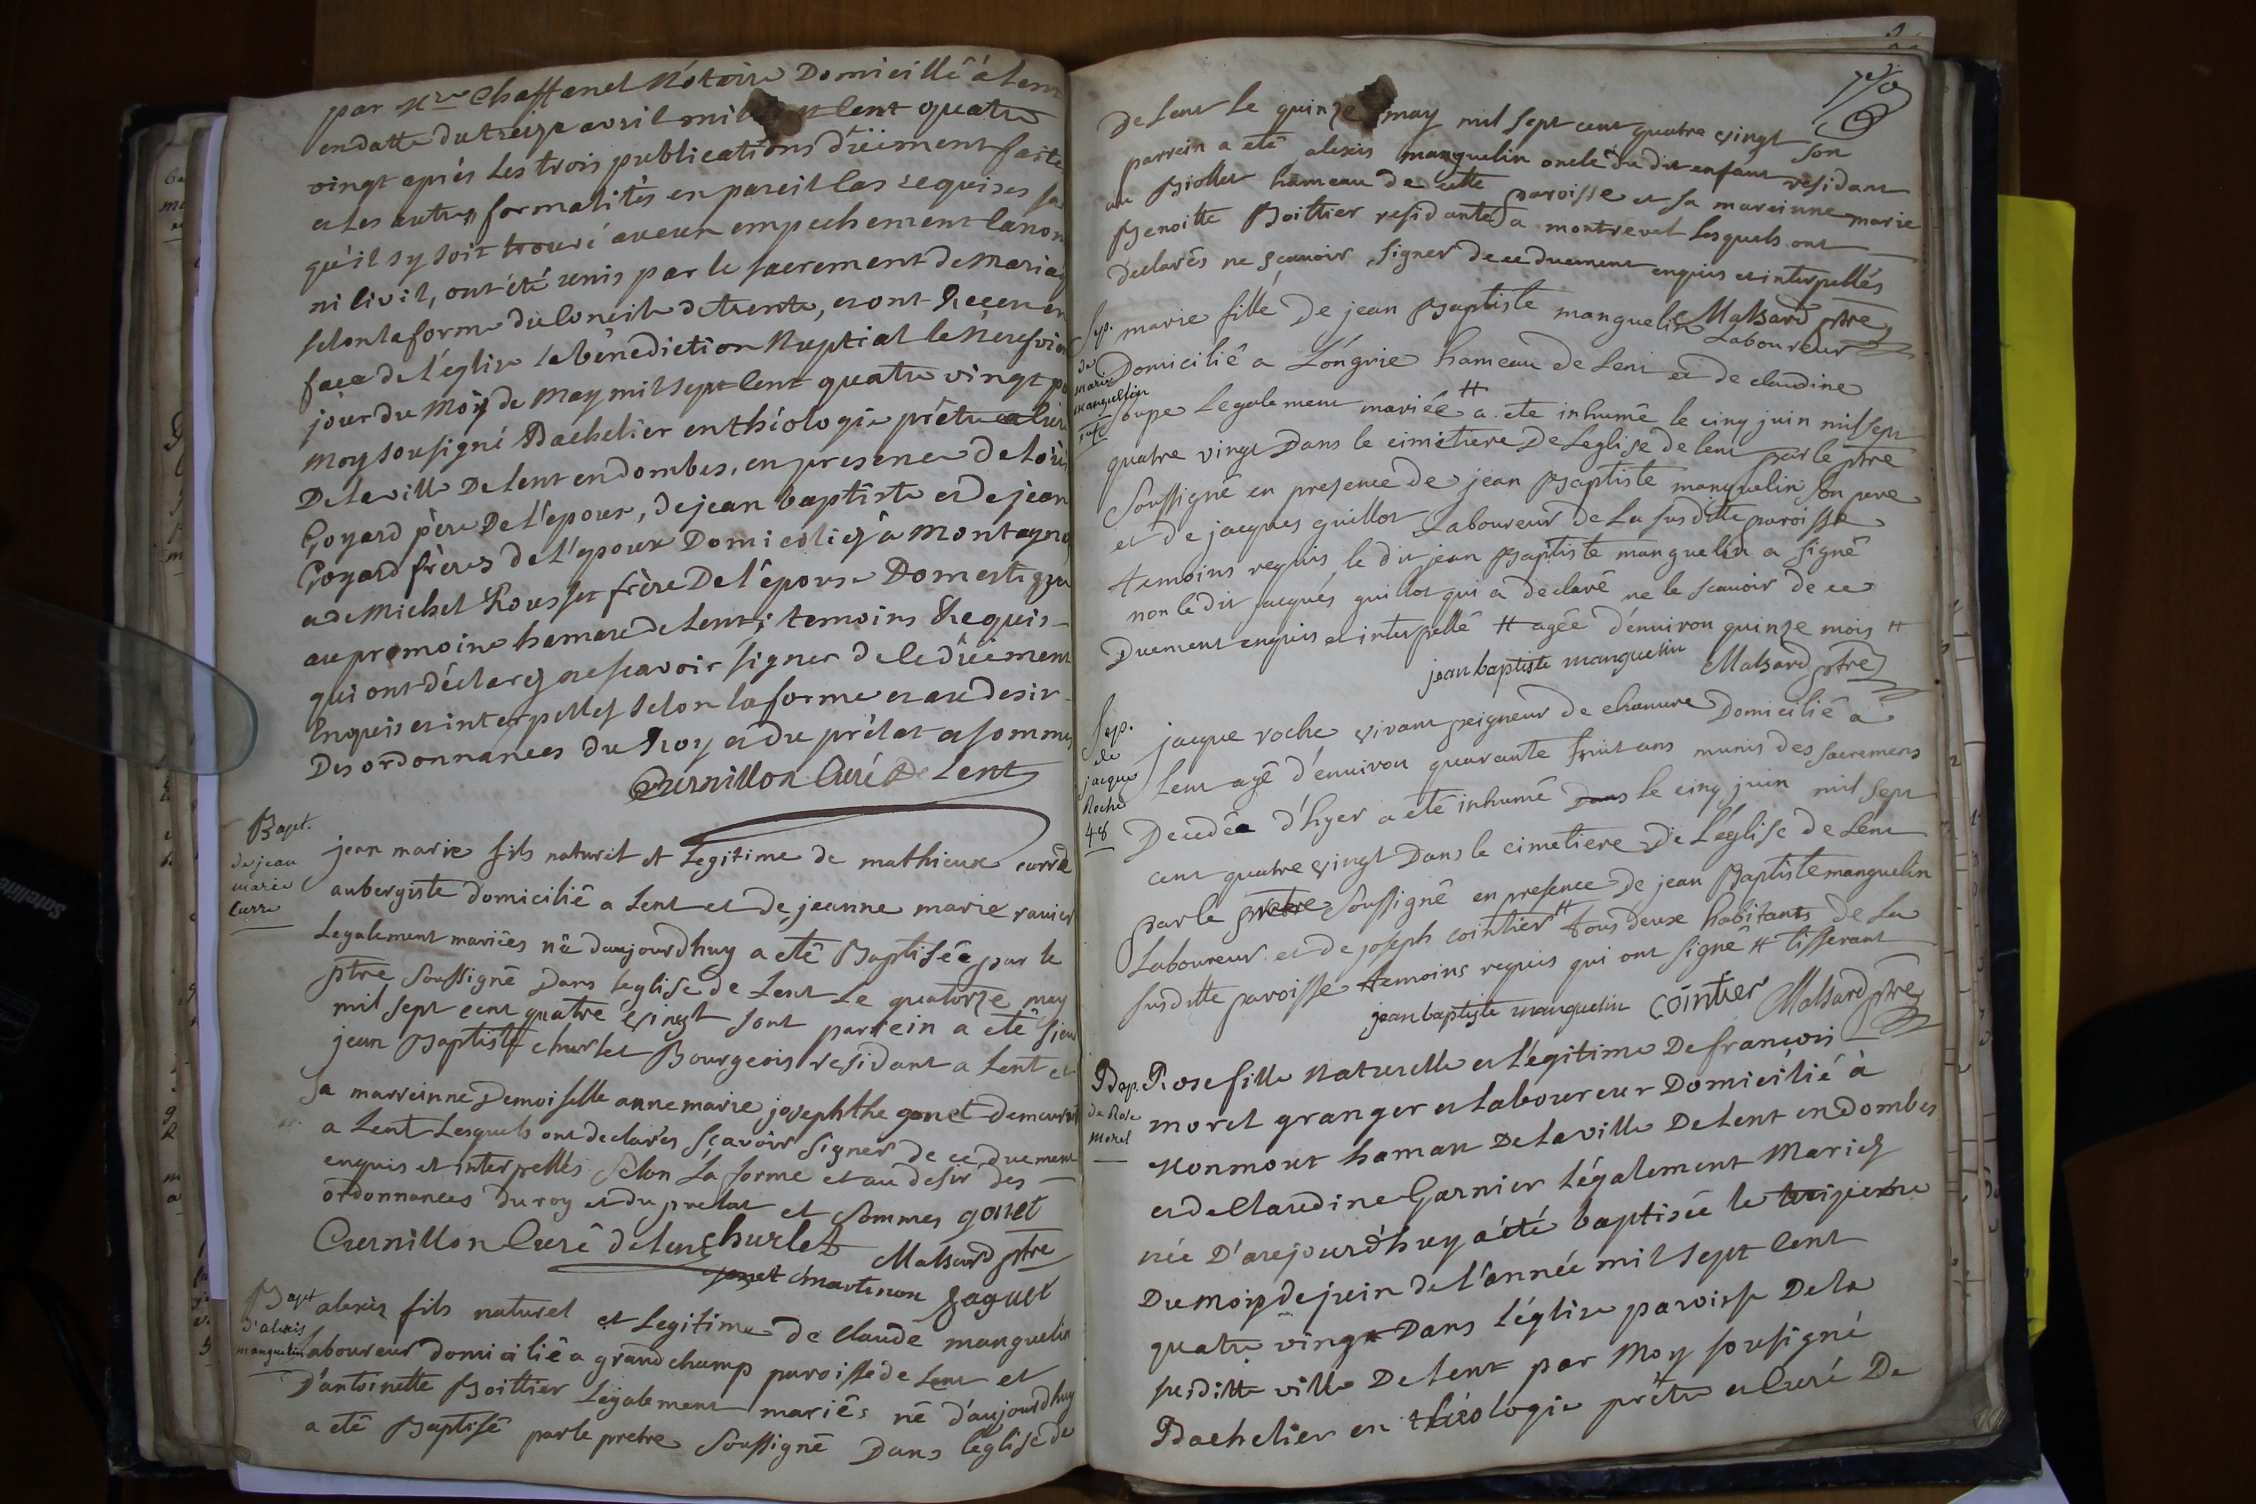 par Me Chaffanel Nótaire Domicillé à Lent
en datte du treize avril mil cent quatre
vingt aprés Les trois publications düëment faite
et Les autres formalités en pareil Cas requises
qu'il sy soit trouvé aucun empechement Canon
ni Civil, ont été unis par le sacrement de Maria
selon la forme du Concile de trente, et ont Receu en
face de L'églize La bénédiction Nuptial le
jour du Mois de May mil sept Cent quatre vingt
Moy sousigné Bachelier en théologie prêtre Curé
De la ville De Lent en dombes, en presence de
Goyard père De L'epoux, de jean baptiste et de jean
Goyard frères de L'epoux Domiciliés à Montagna
et de Michel Rousset frère De L'épouse Domestique
au promoine hameau de Lent; temoins Requis
qui ont déclarez ne scavoir signer de Ce düëment
Enquis et interpellez selon la forme et au desir
Des ordonnances du Roy et du prélat et sommes
Curnillon Curé De Lent
Bapt.
de jean
marie
Curra
jean marie fils naturel et Legitime de mathieux curra
aubergiste domicilié a Lent et de jeanne marie ravier
Legalement mariées né daujourdhuy a eté Baptisée par le
ptre soussigné Dans leglise de Lent Le quatorze may
mil sept cent quatre vingt sont parrein a eté sieur
jean Baptiste churlet Bourgeois residant a Lent et
sa marreinne Demoiselle anne marie josephthe gonet demeurant
a Lent Lesquels ont declarés sçavoir signer de ce duement
enquis et interpellés selon La forme et au desir des
ordonnances du roy et du prelat et sommes gonet
Curnillon Curé de Lent churlet Malsard ptre
gonet Martinon Gaguet
Bapt
d'alexis
manguelin
alexis fils naturel et Legitime de Claude manguelin
Laboureur domicilié a grand champ paroisse de Lent et
D'antoinette Boittier Legalement mariés né d'aujourdhuy
a eté Baptisé par le pretre soussigné Dans leglise de
De Lent Le quinze may mil sept cent quatre vingt son
parrein a eté alexis manguelin oncle du dit enfant residant
au Biollet hameau de cette paroisse et sa mareinne marie
Benoitte Boittier residante a montrevel Lesquels ont
declarés ne sçavoir signer de ce duement enquis et interpellés
Malsard ptre
Sep.
de
marie
manguelin
marie fille de jean Baptiste manguelin Laboureur
Domicilié a Longrie hameau de Lent et de claudine
Soupe Legalement mariée # a ete inhumé le cinq juin mil sept
quatre vingt Dans le cimetiere De Leglise de Lent par le ptre
Soussigné en presence de jean Baptiste manguelin son pere
et de jacques guillot Laboureur de La susditte paroisse
temoins requis, le dit jean Baptiste manguelin a signé
non le dit jacques guillot qui a declaré ne le scavoir de ce
Duement enquis et interpellé # agée d'environ quinze mois #
jean baptiste manguelin Malsard ptre
Sep.
de
jacques
Roche
48
jacque roche vivant peigneur de chanvre Domicilié a
Lent agé d'environ quarante huit ans munis des sacremens
Decedée d'hyer a eté inhumé Dans le cinq juin mil sept
cent quatre vingt Dans le cimetiere De Leglise de Lent
par le pretre soussigné en presence De jean Baptiste manguelin
Laboureur et de joseph cointier # tous deux habitants de La
susditte paroisse temoins requis qui ont signé # tisserant
jean baptiste manguelin cointier Malsard ptre
Bap.
de Rose
Morel
Rose fille Naturelle et Légitime De françois
morel granger et Laboureur Domicilié à
Monmout hamau De La ville De Lent en dombes
et de Claudine Garnier Légalement Mariez
née D'aujourd'huy a été baptisée le treizieme
Du Mois de juin de L'année mil sept Cent
quatre vingt Dans L'églize paroisse De la
susditte ville De Lent par Moy sousigné
Bachelier en théologie prêtre et Curé De